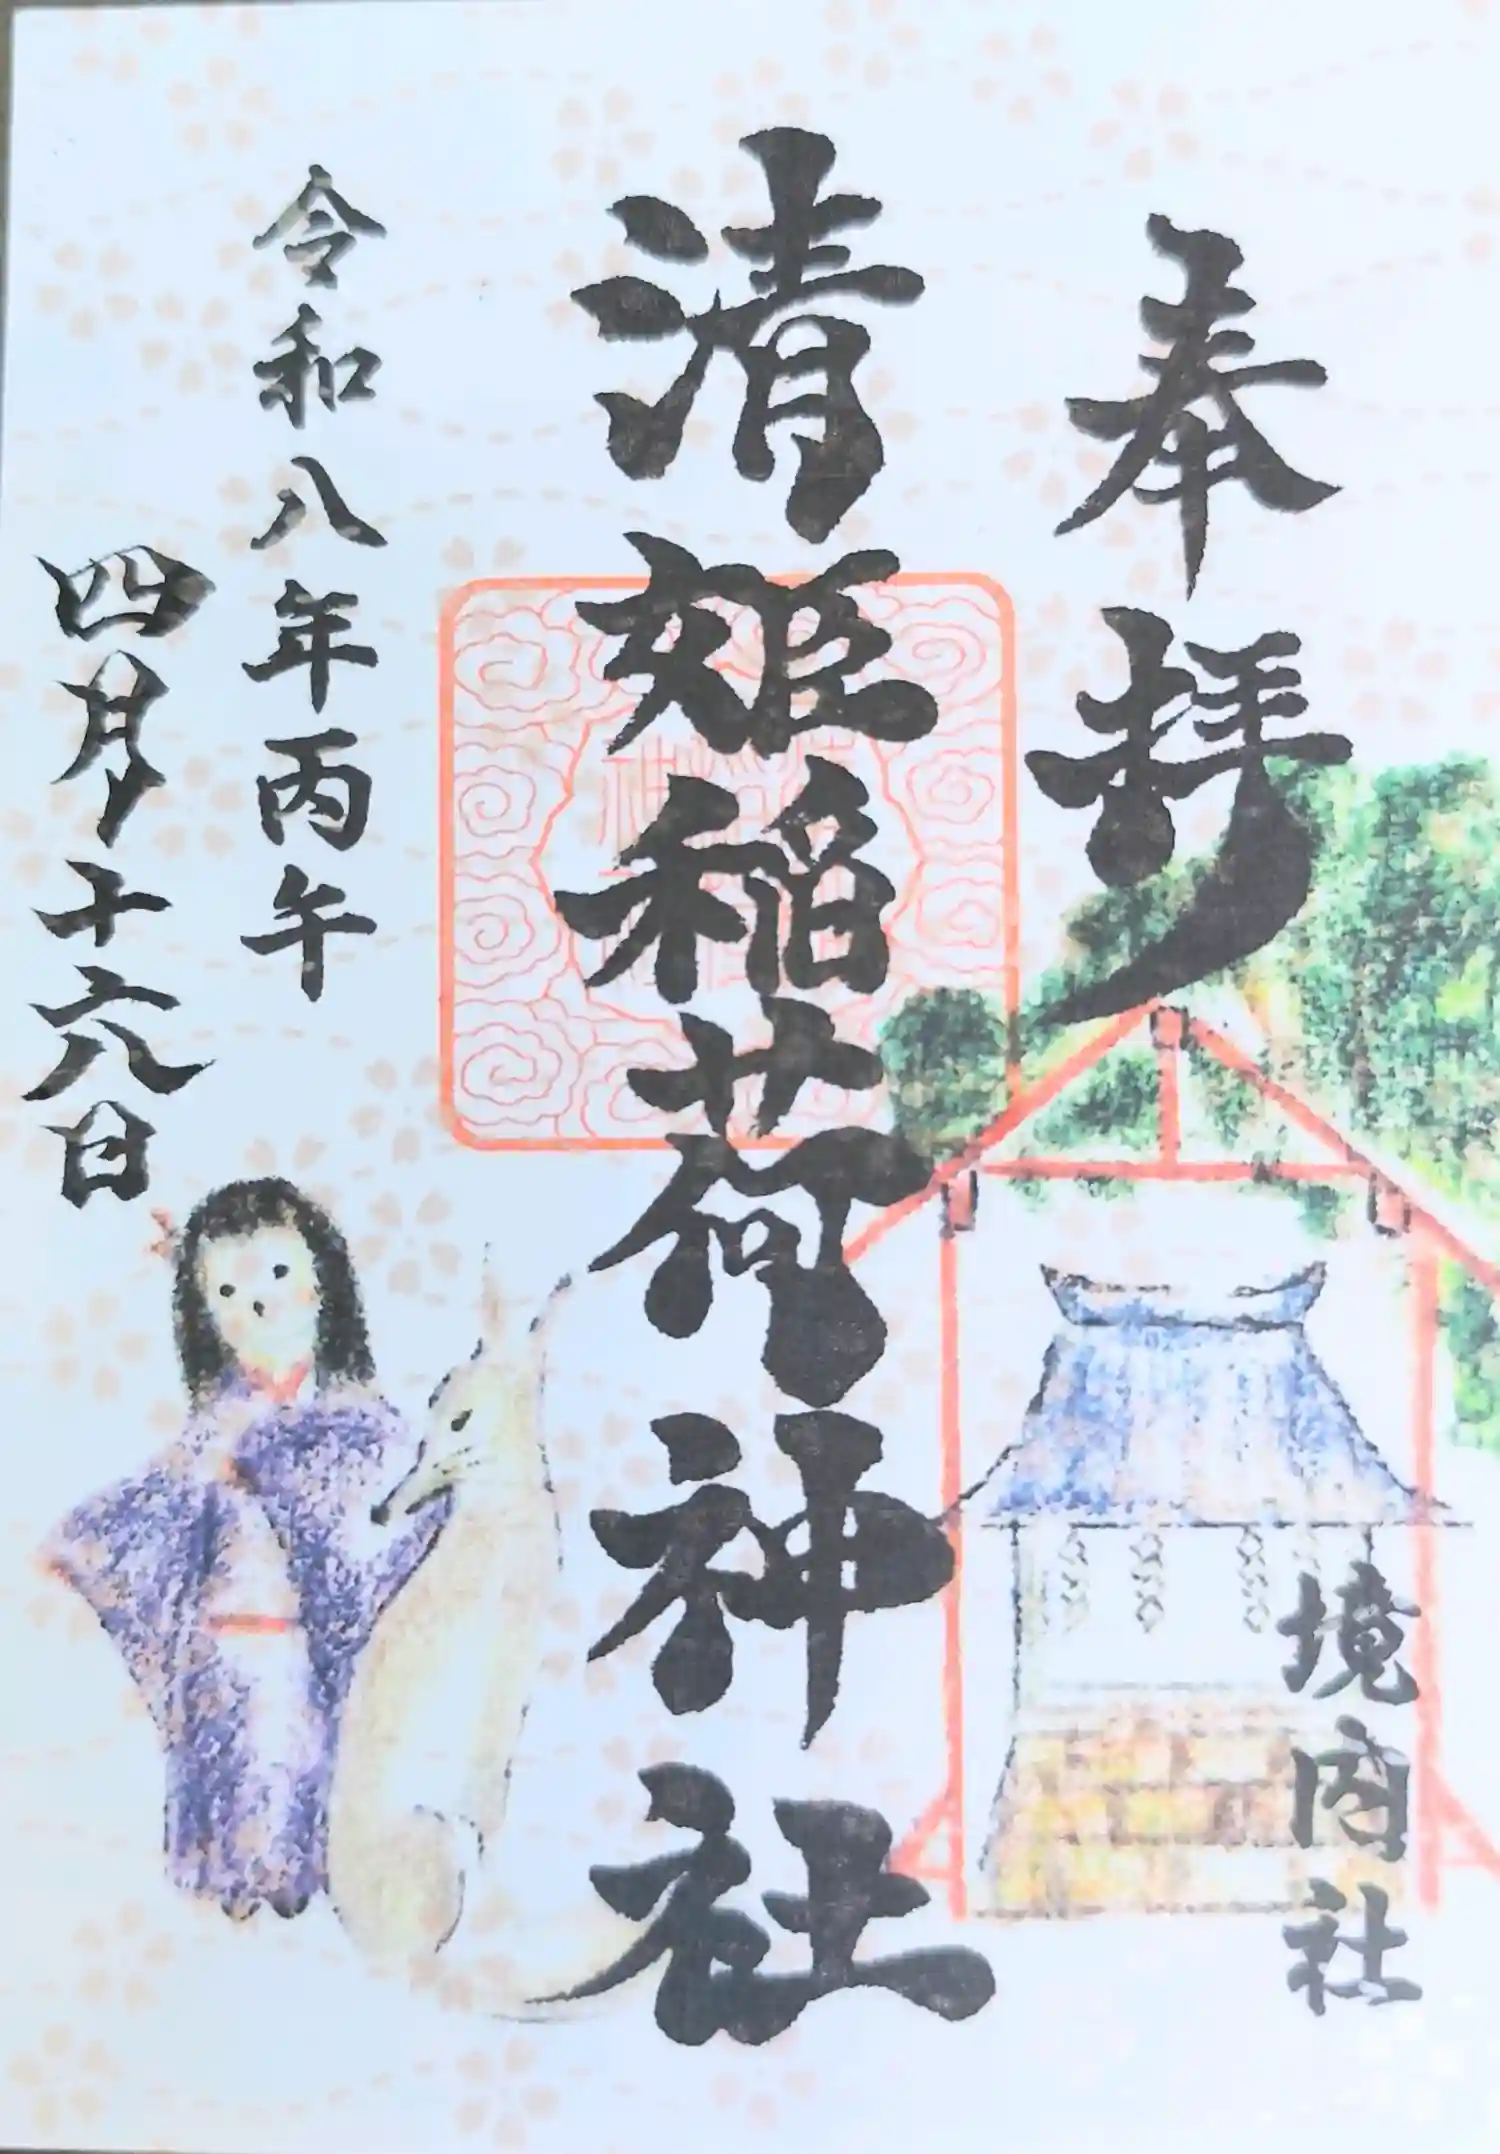 奉拝
境内社
清姫稲荷神社
令和八年丙午
四月十六日